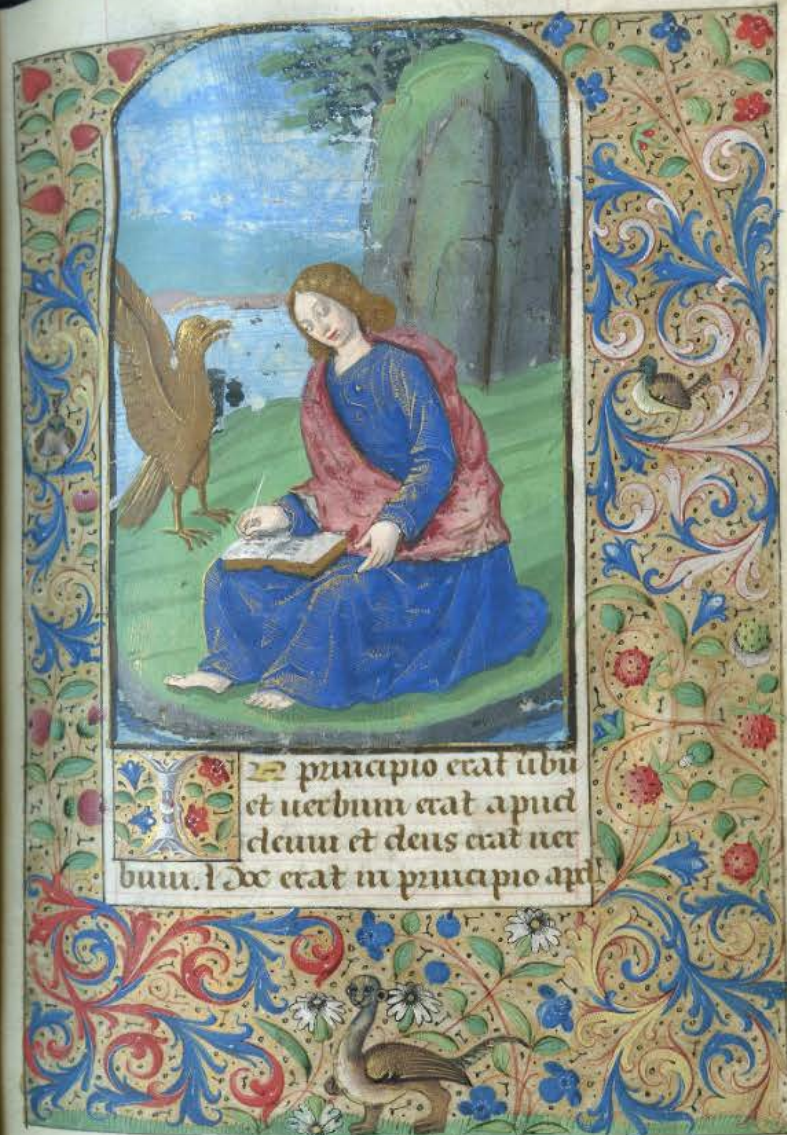 In principio erat ubu
et uerbum erat apud
deum et deus erat uer
bum. Hoc erat in principio apd